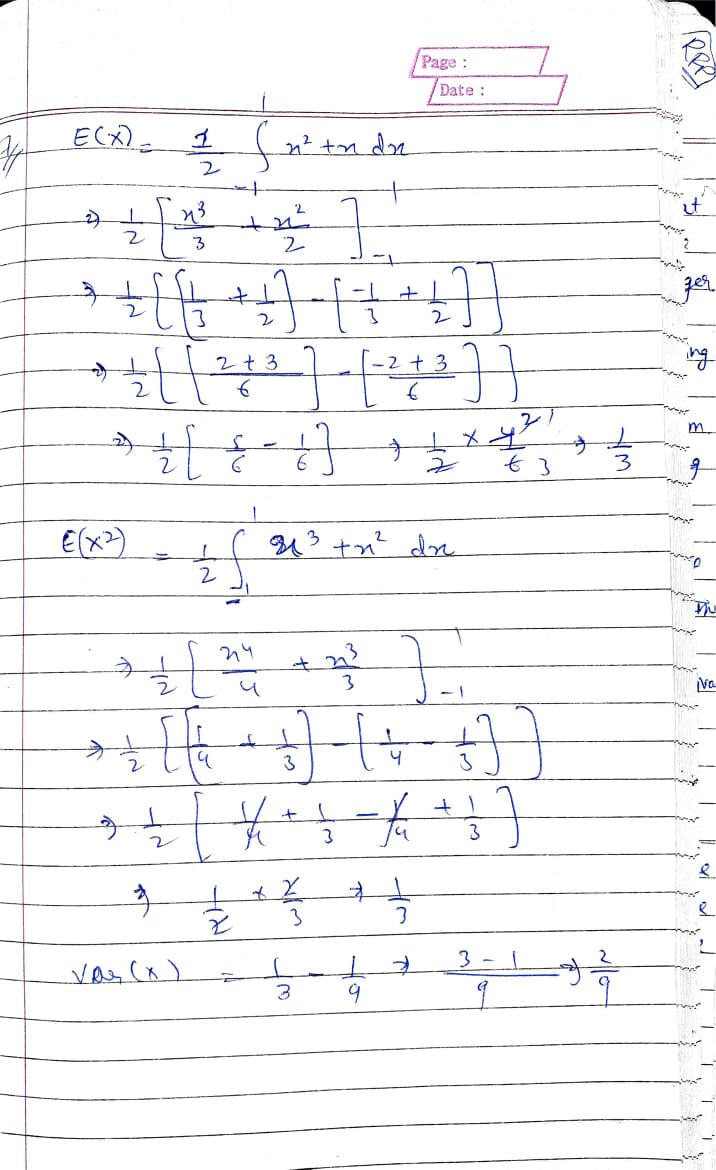 Page :
Date :
E(x) = 1/2 ∫_{-1}^{1} x² + x dx
⇒ 1/2 [x³/3 + x²/2]_{-1}^{1}
⇒ 1/2 [[1/3 + 1/2] - [-1/3 + 1/2]]
⇒ 1/2 [[2+3/6] - [-2+3/6]]
⇒ 1/2 [5/6 - 1/6] ⇒ 1/2 × 4/6 ⇒ 1/3
E(x²) = 1/2 ∫_{-1}^{1} x³ + x² dx
⇒ 1/2 [x⁴/4 + x³/3]_{-1}^{1}
⇒ 1/2 [[1/4 + 1/3] - [1/4 - 1/3]]
⇒ 1/2 [1/4 + 1/3 - 1/4 + 1/3]
⇒ 1/2 × 2/3 ⇒ 1/3
Var(x) = 1/3 - 1/9 ⇒ 3-1/9 ⇒ 2/9